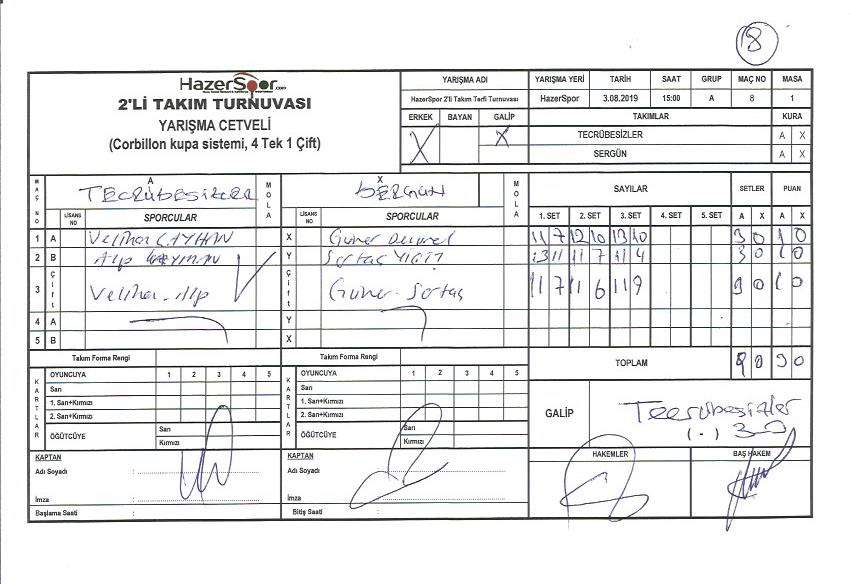 8
HazerSpor.com
2'Lİ TAKIM TURNUVASI
YARIŞMA CETVELİ
(Corbillon kupa sistemi, 4 Tek 1 Çift)
YARIŞMA ADI YARIŞMA YERİ TARİH SAAT GRUP MAÇ NO MASA
HazerSpor 2'li Takım Terfi Turnuvası HazerSpor 3.08.2019 15:00 A 8 1
ERKEK BAYAN GALİP TAKIMLAR KURA
X X TECRÜBESİZLER A X
SERGÜN A X
MAÇ NO A TECRÜBESİZLER MOLA X SERGÜN MOLA SAYILAR SETLER PUAN
LİSANS NO SPORCULAR LİSANS NO SPORCULAR 1. SET 2. SET 3. SET 4. SET 5. SET A X A X
1 A Velihan CAYHAN X Güner 11 7 12 10 13 10 3 0 1 0
2 B Alp Y Sertaç YİĞİT 13 11 11 7 11 4 3 0 1 0
3 Çift Velihan-Alp Çift Güner-Sertaç 11 7 11 6 11 9 3 0 1 0
4 A Y
5 B X
Takım Forma Rengi Takım Forma Rengi TOPLAM 9 0 3 0
KARTLAR OYUNCUYA 1 2 3 4 5 KARTLAR OYUNCUYA 1 2 3 4 5
Sarı Sarı
1. Sarı+Kırmızı 1. Sarı+Kırmızı
2. Sarı+Kırmızı 2. Sarı+Kırmızı
ÖĞÜTCÜYE Sarı ÖĞÜTCÜYE Sarı
Kırmızı Kırmızı
GALİP Tecrübesizler
(-) 3-0
KAPTAN KAPTAN HAKEMLER BAŞ HAKEM
Adı Soyadı : Adı Soyadı :
İmza : İmza :
Başlama Saati : Bitiş Saati :